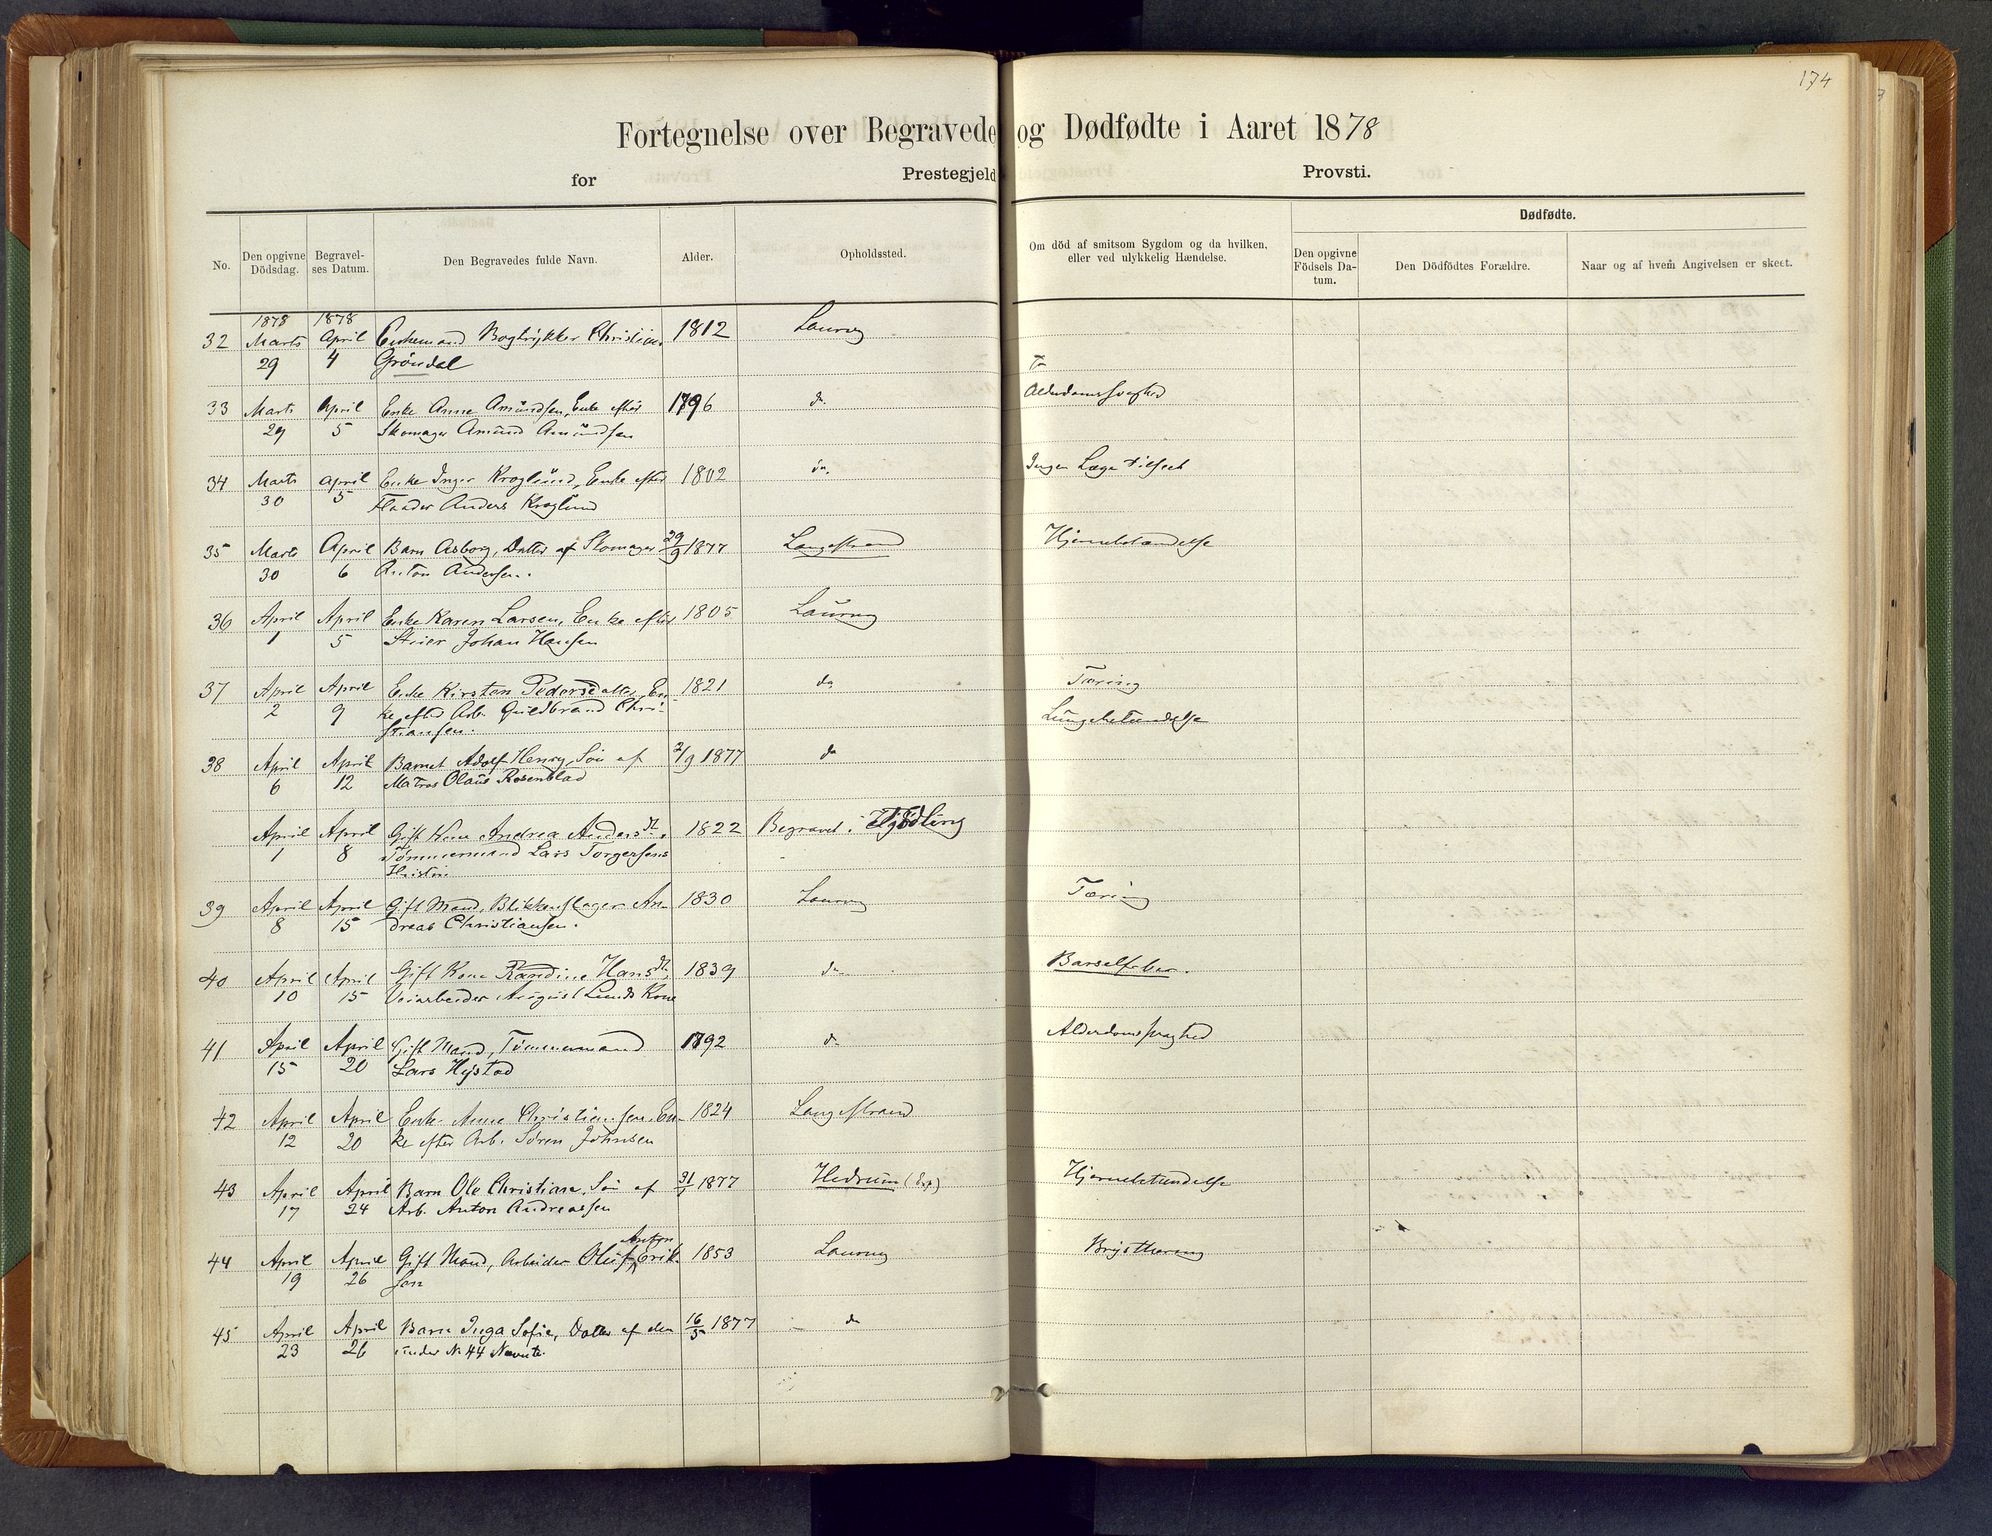 174
Fortegnelse over Begravede og Dødfødte i Aaret 1878
for Prestegjeld Provsti.
No.
Den opgivne Dödsdag.
Begravelses Datum.
Den Begravedes fulde Navn.
Alder.
Opholdssted.
Om död af smitsom Sygdom og da hvilken,
eller ved ulykkelig Hændelse.
Dødfødte.
Den opgivne Födsels Datum.
Den Dödfödtes Forældre.
Naar og af hvem Angivelsen er skeet.
1878 1878
32 Marts April Enkemand Bogtrykker Christian 1812 Laurvig
29 4 Gröndal
33 Marts April Enke Anne Amündsen, Enke efter 1796 do Alderdomssvaghed
29 5 Skomager Amünd Amündsen
34 Marts April Enke Inger Kroglünd, Enke efter 1802 do. Ingen Læge tilseet
30 5 Anders Kroglund
35 Marts April Barn Asborg, Datter af Skomager 29/9 1877 Langestrand Hjernebetændelse
30 6 Anton Andersen.
36 April April Enke Karen Larsen, Enke efter 1805 Laurvig
1 5 Johan Hansen
37 April April Enke Kirsten Pedersdatter, En- 1821 do Tæring
2 9 ke efter Arb. Guldbrand Chri- Lungebetændelse
stiansen.
38 April April Barnet Adolf Henry, Sön af 2/9 1877 do
6 12 Matros Olaüs Rosenblad
April April Gift Kone Andrea Andersdt. 1822 Begravet i
1 8 Tömmermand Lars Torgersens
Hüstrü
39 April April Gift Mand, Blikkenslager An- 1830 Laurvig Tæring
8 15 dreas Christiansen.
40 April April Gift Kone Randine Hansdt. 1839 do Barselfeber.
10 15 Veiarbeider Aügust Lunds Kone
41 April April Gift Mand, Tömmermand 1792 do Alderdomssvaghed
15 20 Lars Hystad
42 April April Enke Anne Christiansen, En- 1824 Langestrand
12 20 ke efter Arb. Sören Johnsen
43 April April Barn Ole Christian, Sön af 31/1 1877 Hedrum Hjernebetændelse
17 24 Arb. Anton Andreassen
Anton
44 April April Gift Mand, Arbeider Olüf Erik- 1853 Laurvig Brysttæring
19 26 sen
45 April April Barn Inga Sofie, Datter af den 16/5 1877 do
23 26 under No 44 Nævnte.